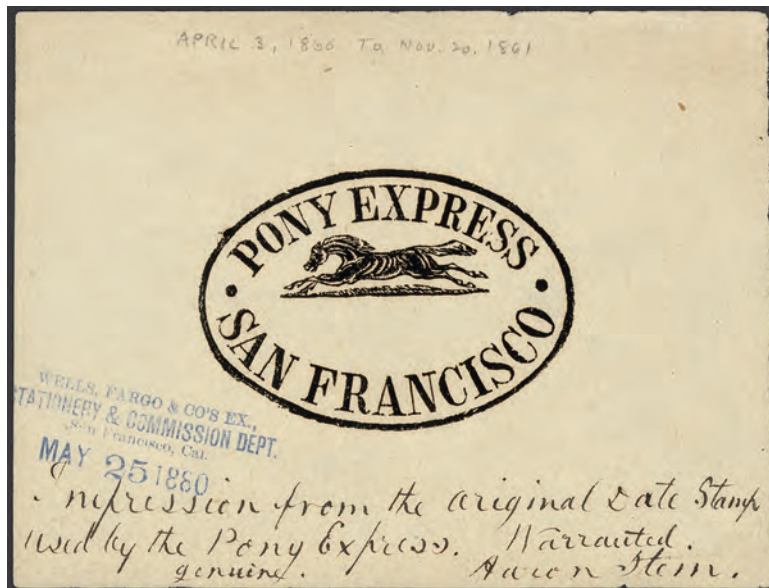 APRIL 3, 1860 To Nov. 20, 1861
PONY EXPRESS
SAN FRANCISCO
WELLS, FARGO & CO'S EX.,
STATIONERY & COMMISSION DEPT.
San Francisco, Cal.
MAY 25 1880
Impression from the original Date Stamp
used by the Pony Express. Warranted.
genuine. Aaron Stein.